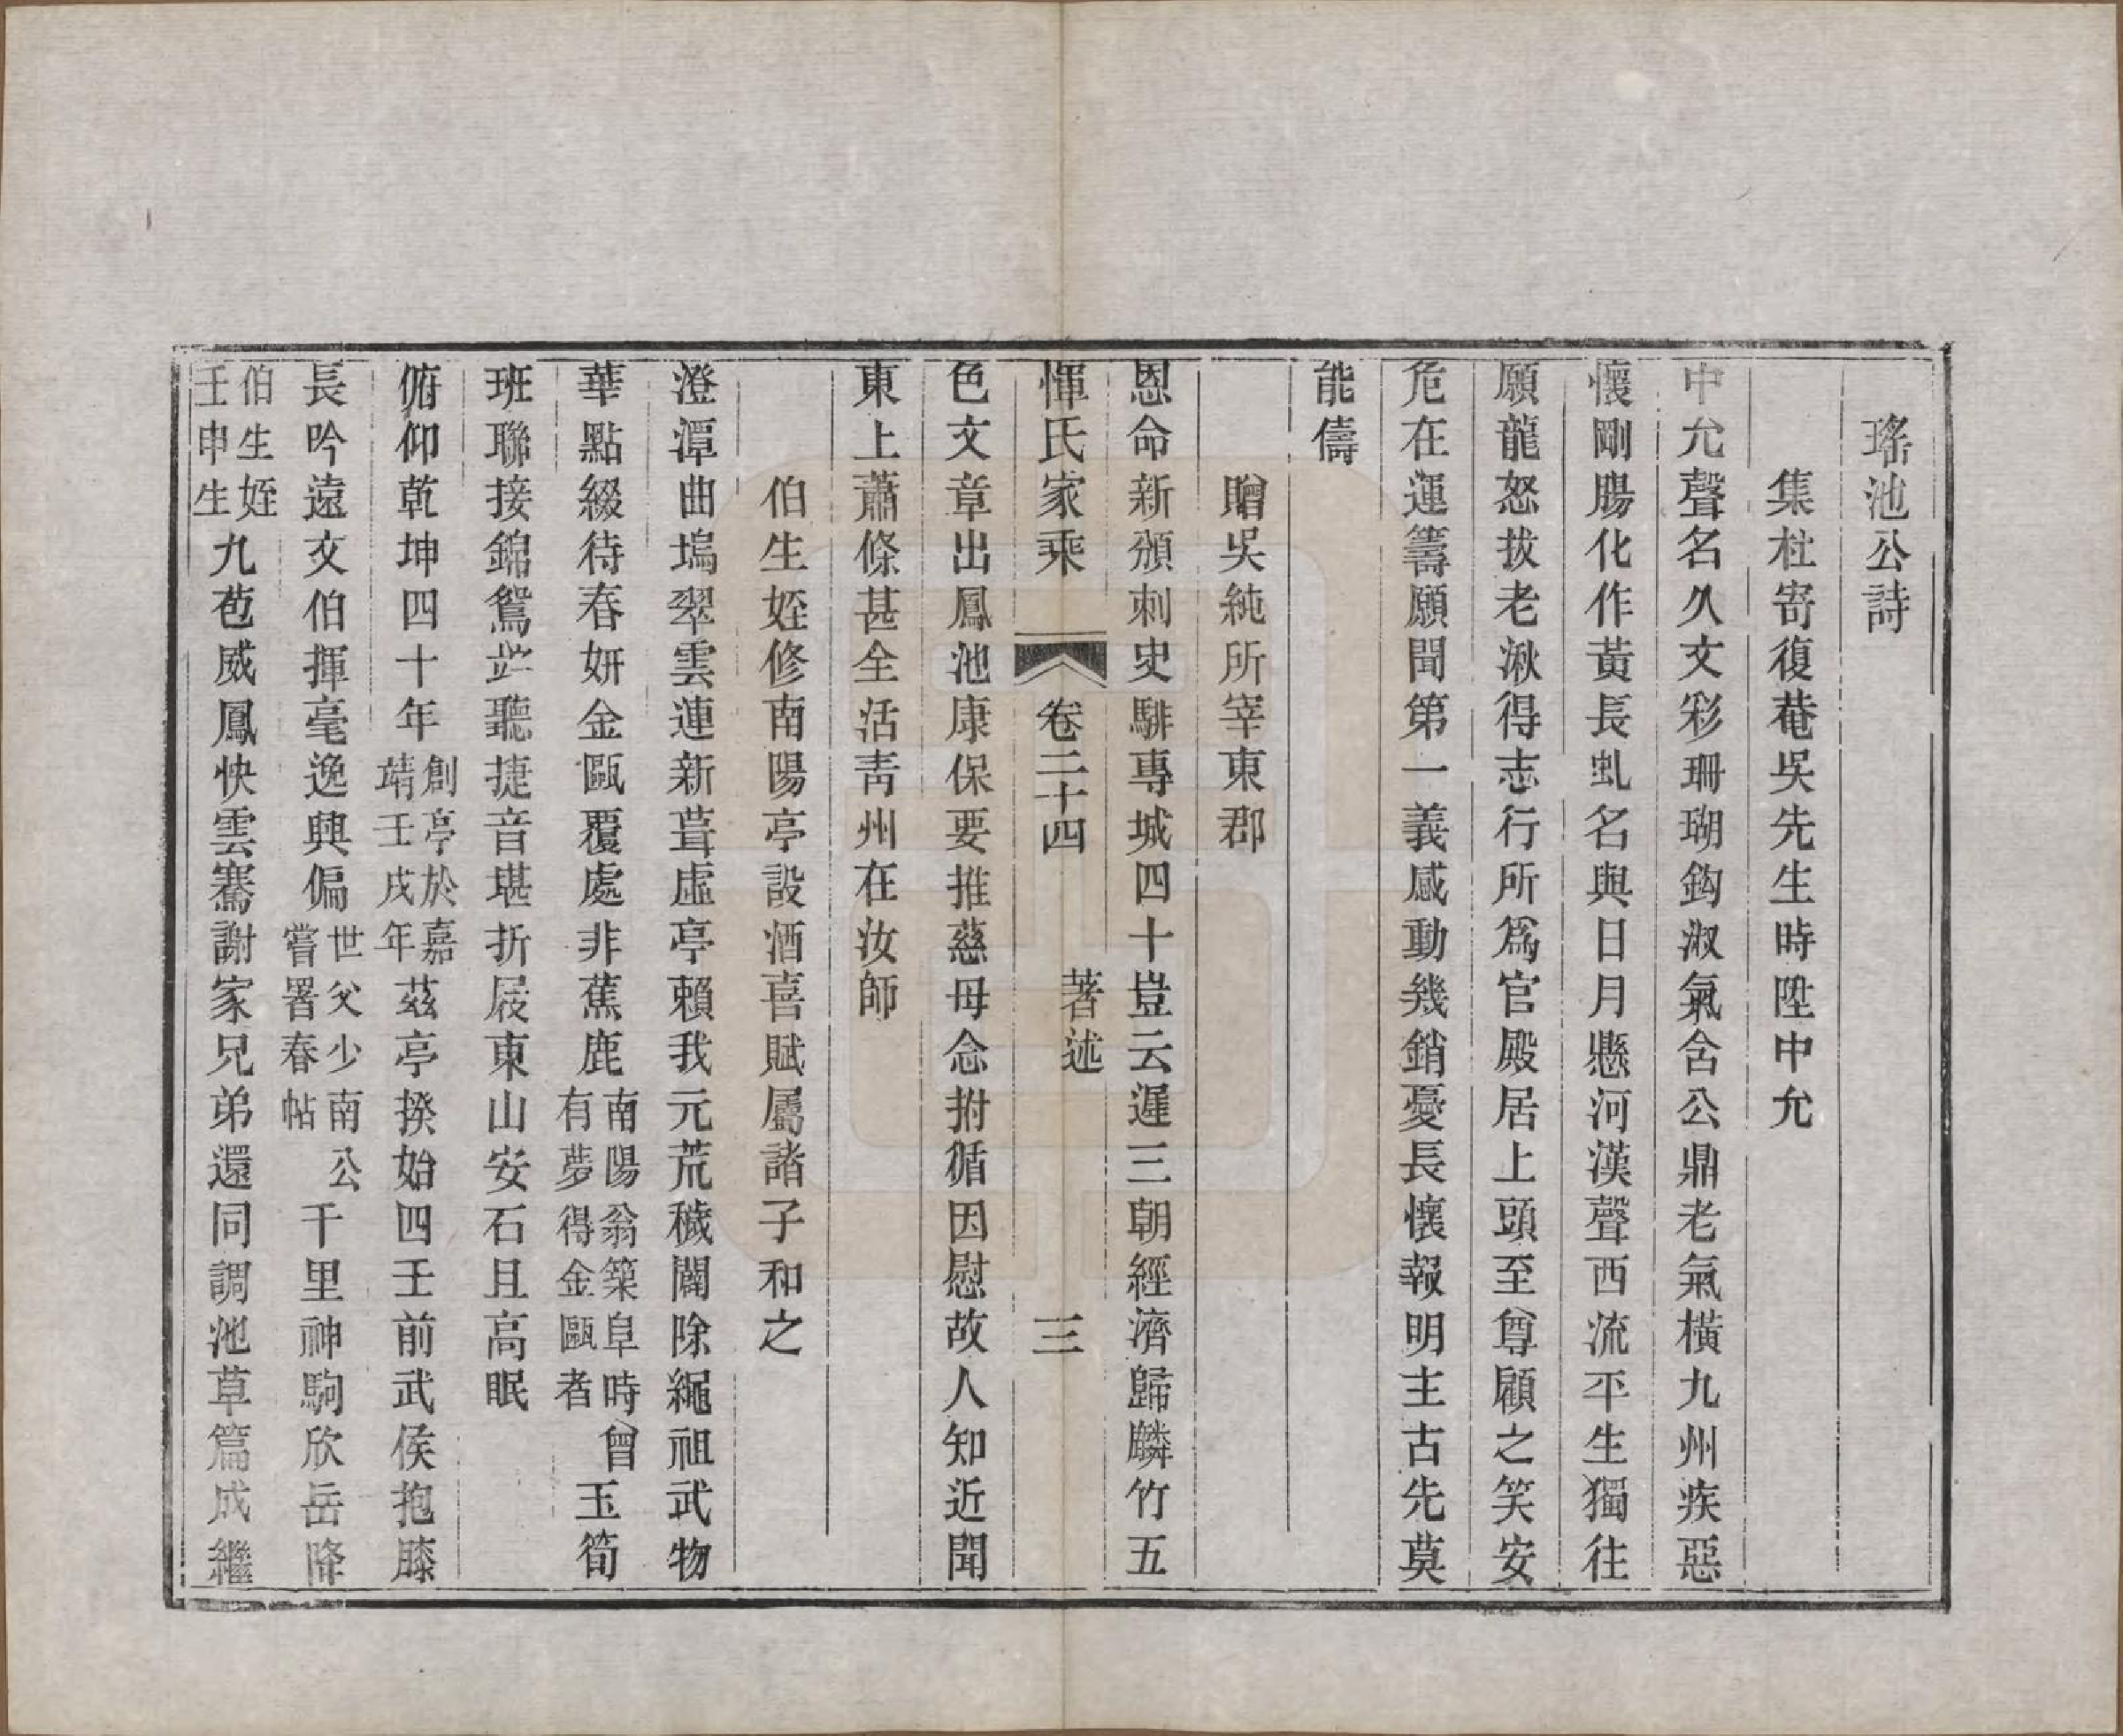 瑤池公詩
集杜寄復菴吳先生時陞中允
中允聲名久文彩珊瑚鈎淑氣含公鼎老氣橫九州疾惡
懷剛腸化作黃長虬名與日月懸河漢聲西流平生獨往
願龍怒拔老湫得志行所爲官殿居上頭至尊顧之笑安
危在運籌願聞第一義感動幾銷憂長懷報明主古先莫
能儔
贈吳純所宰東郡
恩命新頒刺史騑專城四十豈云遲三朝經濟歸麟竹五
惲氏家乘 卷二十四 著述 三
色文章出鳳池康保要推慈母念拊循因慰故人知近聞
東上蕭條甚全活靑州在汝師
伯生姪修南陽亭設酒喜賦屬諸子和之
澄潭曲塢翠雲連新葺虛亭賴我元荒穢闢除繩祖武物
華點綴待春妍金甌覆處非蕉鹿南陽翁築阜時曾有夢得金甌者玉筍
班聯接錦鴛竝聽捷音堪折屐東山安石且高眠
俯仰乾坤四十年創亭於嘉靖壬戌年茲亭揆始四壬前武侯抱膝
長吟遠文伯揮毫逸興偏世父少南公嘗署春帖千里神駒欣岳降
伯生姪壬申生九苞威鳳快雲騫謝家兄弟還同調池草篇成繼